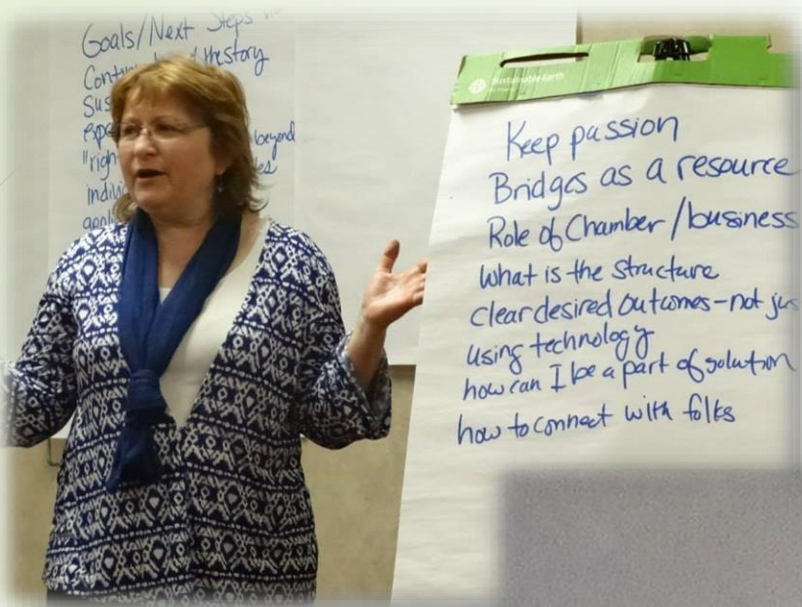 Goals/Next Steps
the story
beyond
Sustainable Earth
Keep passion
Bridges as a resource
Role of Chamber/business
What is the structure
clear desired outcomes-not
using technology
how can I be a part of solution
how to connect with folks